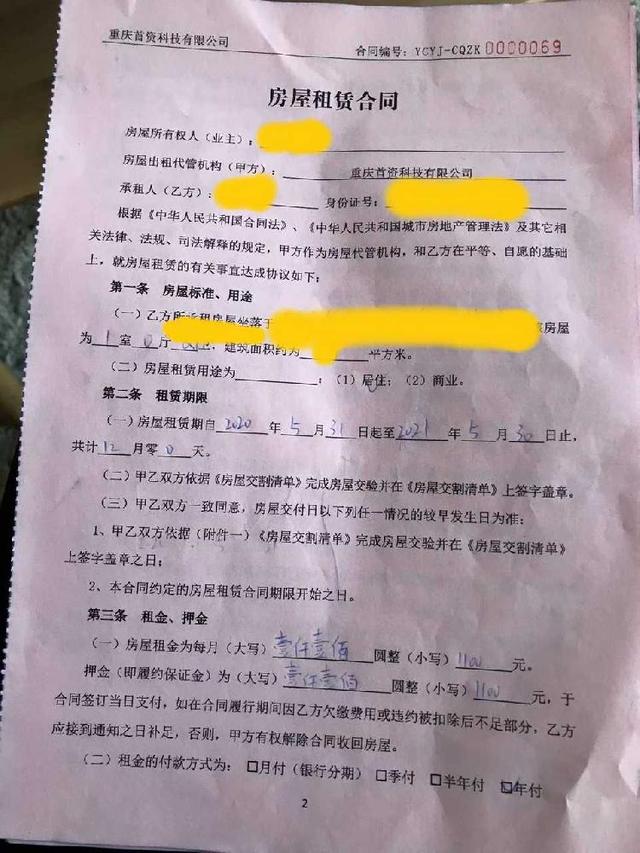 重庆首资科技有限公司
合同编号：YCYJ-CQZK 0000069
房屋租赁合同
房屋所有权人（业主）：
房屋出租代管机构（甲方）： 重庆首资科技有限公司
承租人（乙方）： 身份证号：
根据《中华人民共和国合同法》、《中华人民共和国城市房地产管理法》及其它相
关法律、法规、司法解释的规定，甲方作为房屋代管机构，和乙方在平等、自愿的基础
上，就房屋租赁的有关事宜达成协议如下：
第一条 房屋标准、用途
（一）乙方所承租房屋坐落于 房屋
为 1 室 0 厅 建筑面积约为 平方米。
（二）房屋租赁用途为 ：（1）居住；（2）商业。
第二条 租赁期限
（一）房屋租赁期自 2020 年 5 月 31 日起至 2021 年 5 月 30 日止，
共计 12 月零 0 天。
（二）甲乙双方依据《房屋交割清单》完成房屋交验并在《房屋交割清单》上签字盖章。
（三）甲乙双方一致同意，房屋交付日以下列任一情况的较早发生日为准：
1、甲乙双方依据（附件一）《房屋交割清单》完成房屋交验并在《房屋交割清单》
上签字盖章之日；
2、本合同约定的房屋租赁合同期限开始之日。
第三条 租金、押金
（一）房屋租金为每月（大写） 壹仟壹佰 圆整（小写） 1100 元。
押金（即履约保证金）为（大写） 壹仟壹佰 圆整（小写） 1100 元，于
合同签订当日支付，如在合同履行期间因乙方欠缴费用或违约被扣除后不足部分，乙方
应接到通知之日补足，否则，甲方有权解除合同收回房屋。
（二）租金的付款方式为：□月付（银行分期）□季付 □半年付 ☑年付
2